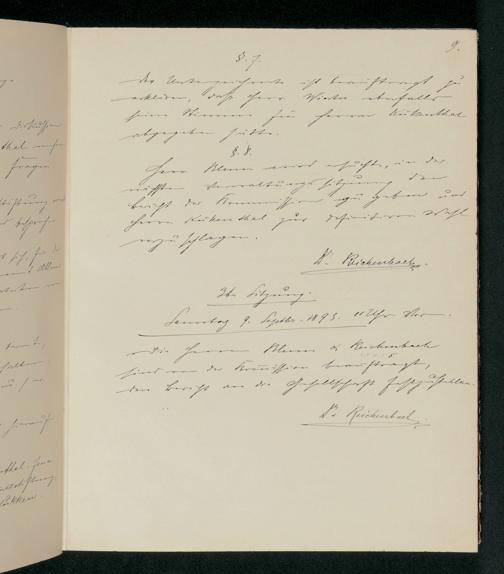 9.
§. 7.
Der Unterzeichnete ist beauftragt zu
erklären, daß Herr Winter ebenfalls
seine Stimme für Herrn Kükenthal
abgegeben hätte.
§. 8.
Herr Blum wird ersucht, in der
nächsten Verwaltungssitzung den
Bericht der Kommission zu geben und
Herrn Kükenthal zur definitiven Wahl
vorzuschlagen.
Dr. Reichenbach.
Sitzung.
Samstag 9. Septbr. 1893. 11 Uhr Vorm.
Die Herren Blum & Reichenbach
sind von der Kommission beauftragt,
den Bericht an die Gesellschaft festzustellen.
Dr. Reichenbach.